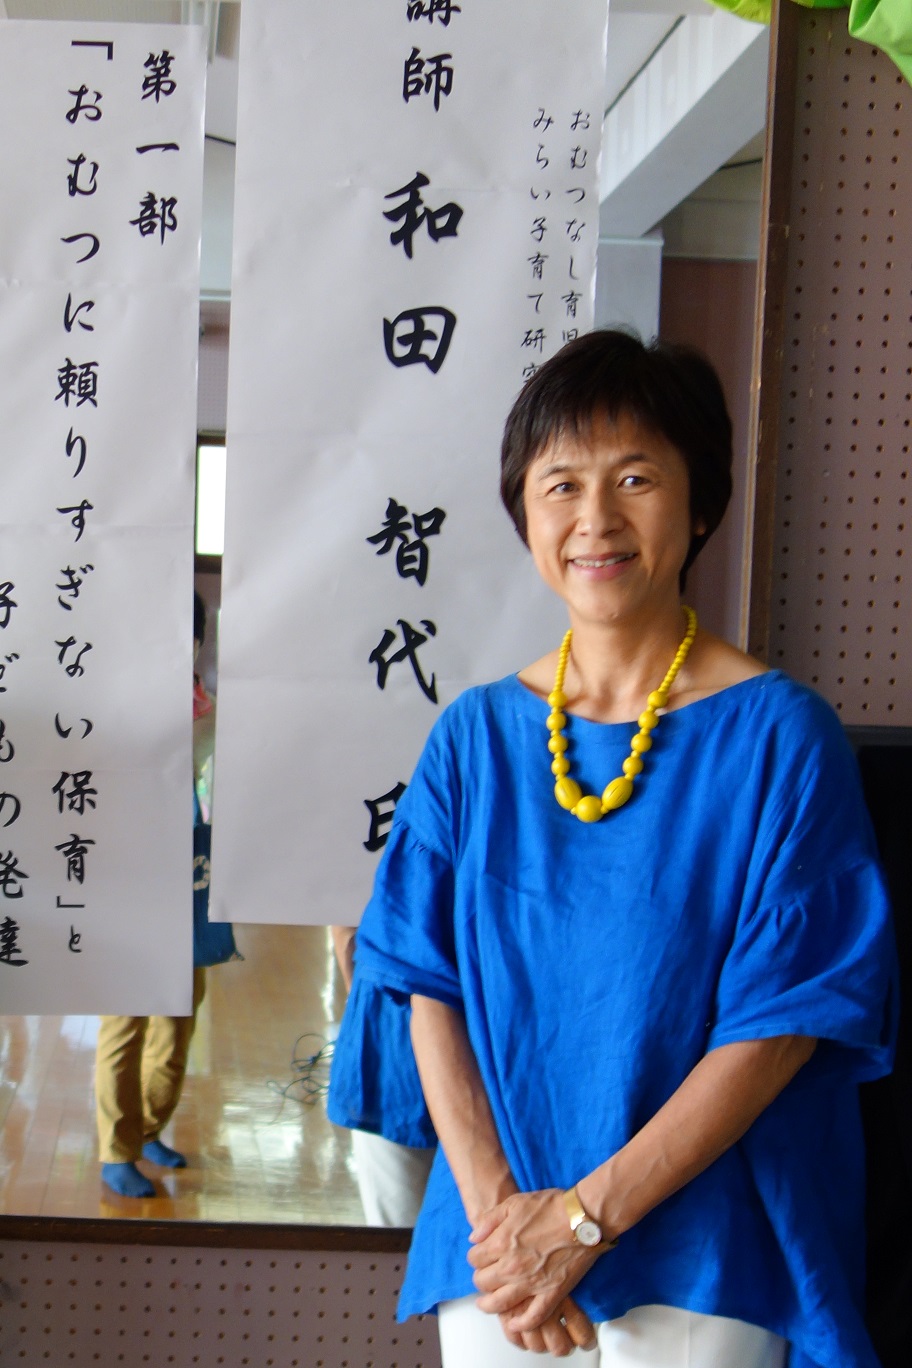 おむつなし育児
みらい子育て研究
講師 和田 智代 氏
第一部
「おむつに頼りすぎない保育」と
子どもの発達